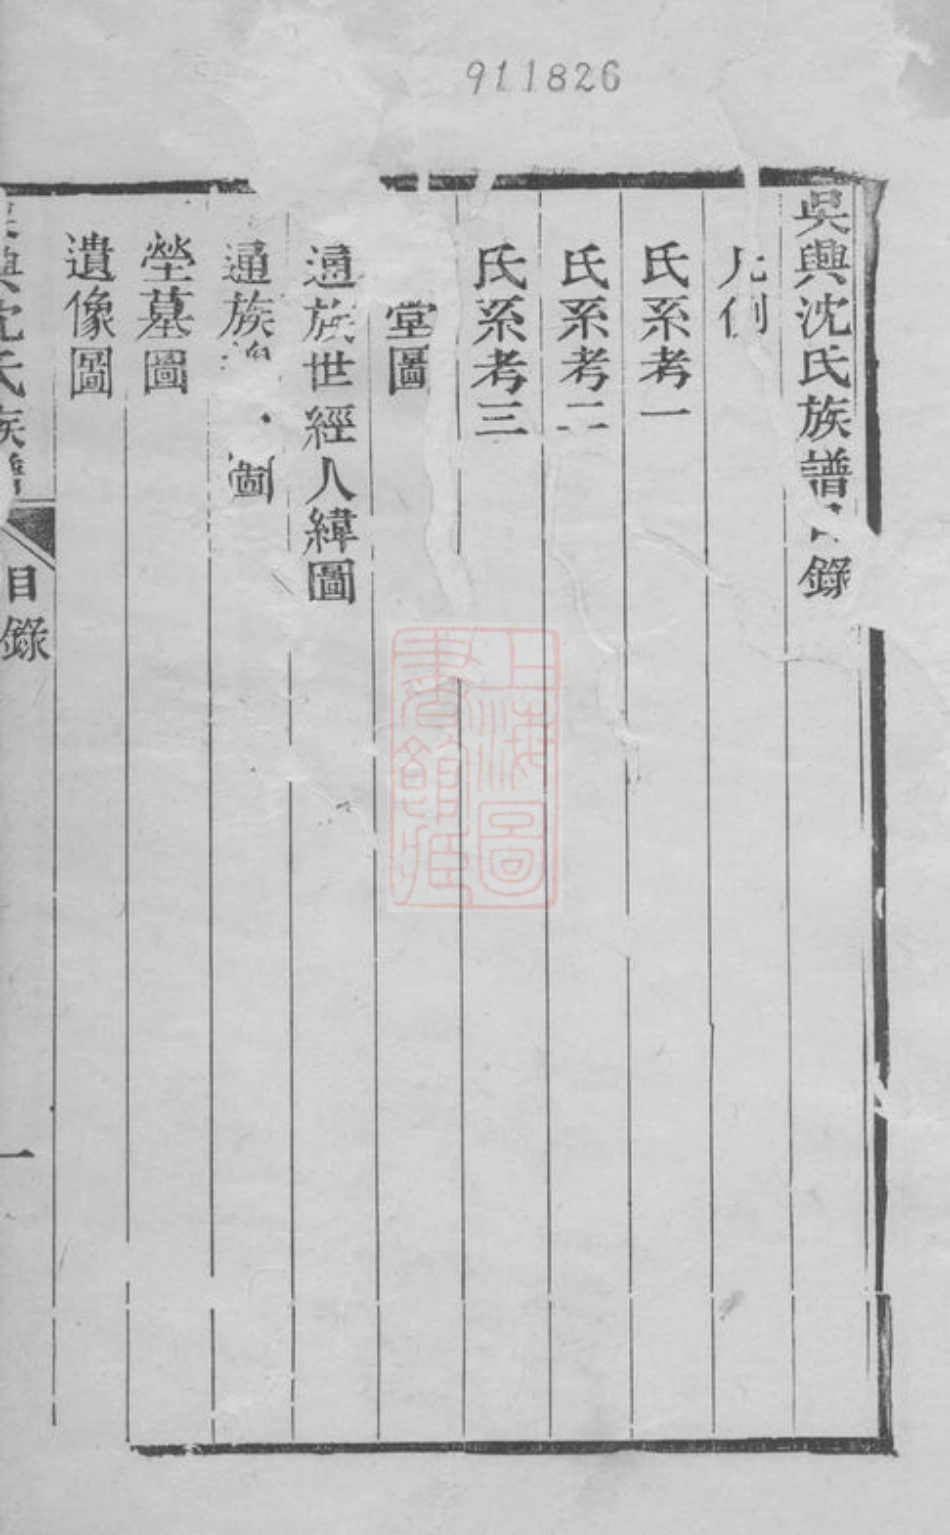 911826
吳興沈氏族譜目錄
凡例
氏系考一
氏系考二
氏系考三
堂圖
通族世經人緯圖
通族 圖
塋墓圖
遺像圖
吳興沈氏族譜
目錄
一
上海圖書館藏